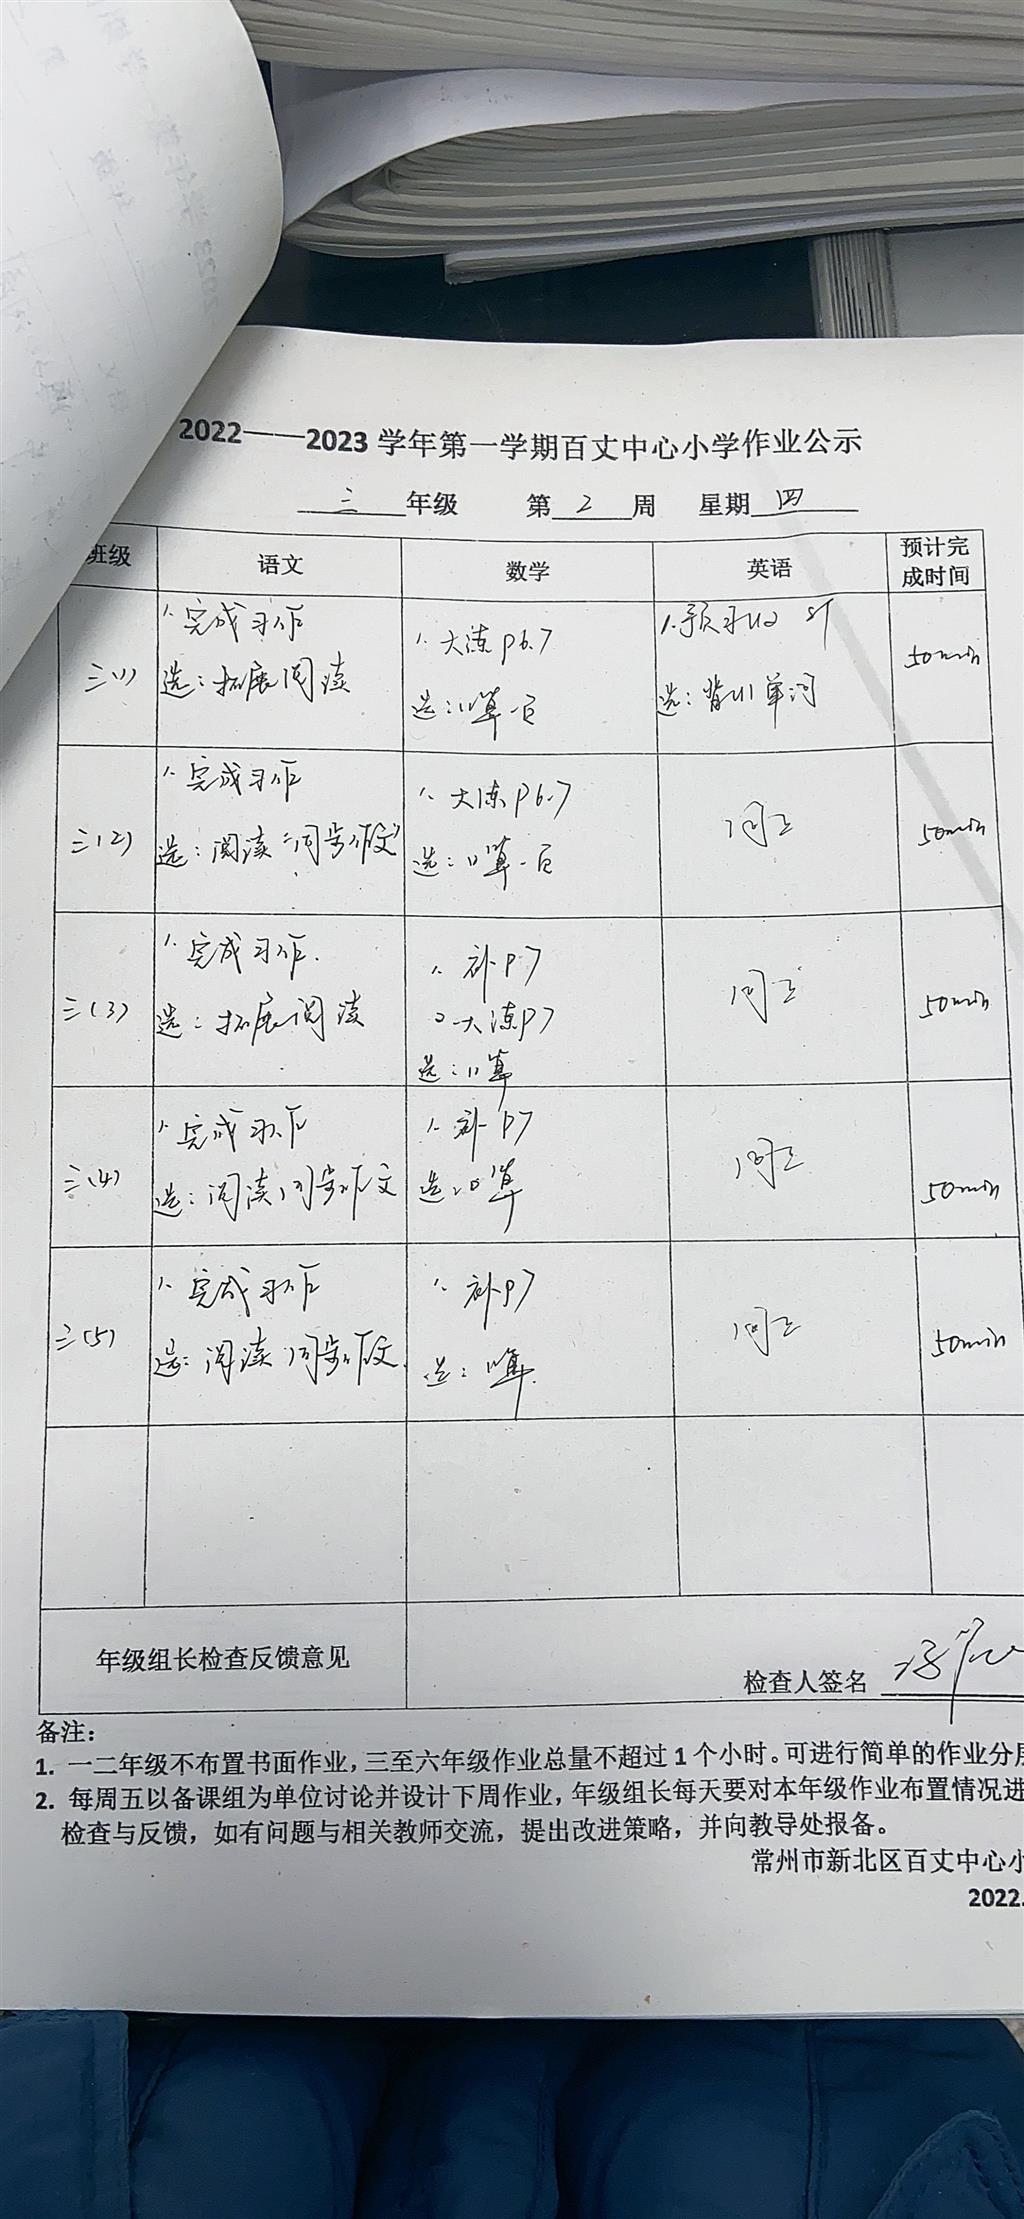 2022——2023 学年第一学期百丈中心小学作业公示
三 年级 第 2 周 星期 四
班级 语文 数学 英语 预计完成时间
三(1)
1. 完成习作
选：拓展阅读
1. 大练 P6.7
选：口算一页
1. 预习U2 ST
选：背U1单词
50min
三(2)
1. 完成习作
选：阅读“同步作文”
1. 大练P6.7
选：口算一页
同上
50min
三(3)
1. 完成习作.
选：拓展阅读
1. 补P7
2 大练P7
选：口算
同上
50min
三(4)
1. 完成习作
选：阅读同步作文
1. 补P7
选：口算
同上
50min
三(5)
1. 完成习作
选：阅读同步作文.
1. 补P7
选：口算.
同上
50min
年级组长检查反馈意见
检查人签名
备注：
1. 一二年级不布置书面作业，三至六年级作业总量不超过 1 个小时。可进行简单的作业分
2. 每周五以备课组为单位讨论并设计下周作业，年级组长每天要对本年级作业布置情况进
检查与反馈，如有问题与相关教师交流，提出改进策略，并向教导处报备。
常州市新北区百丈中心小
2022.